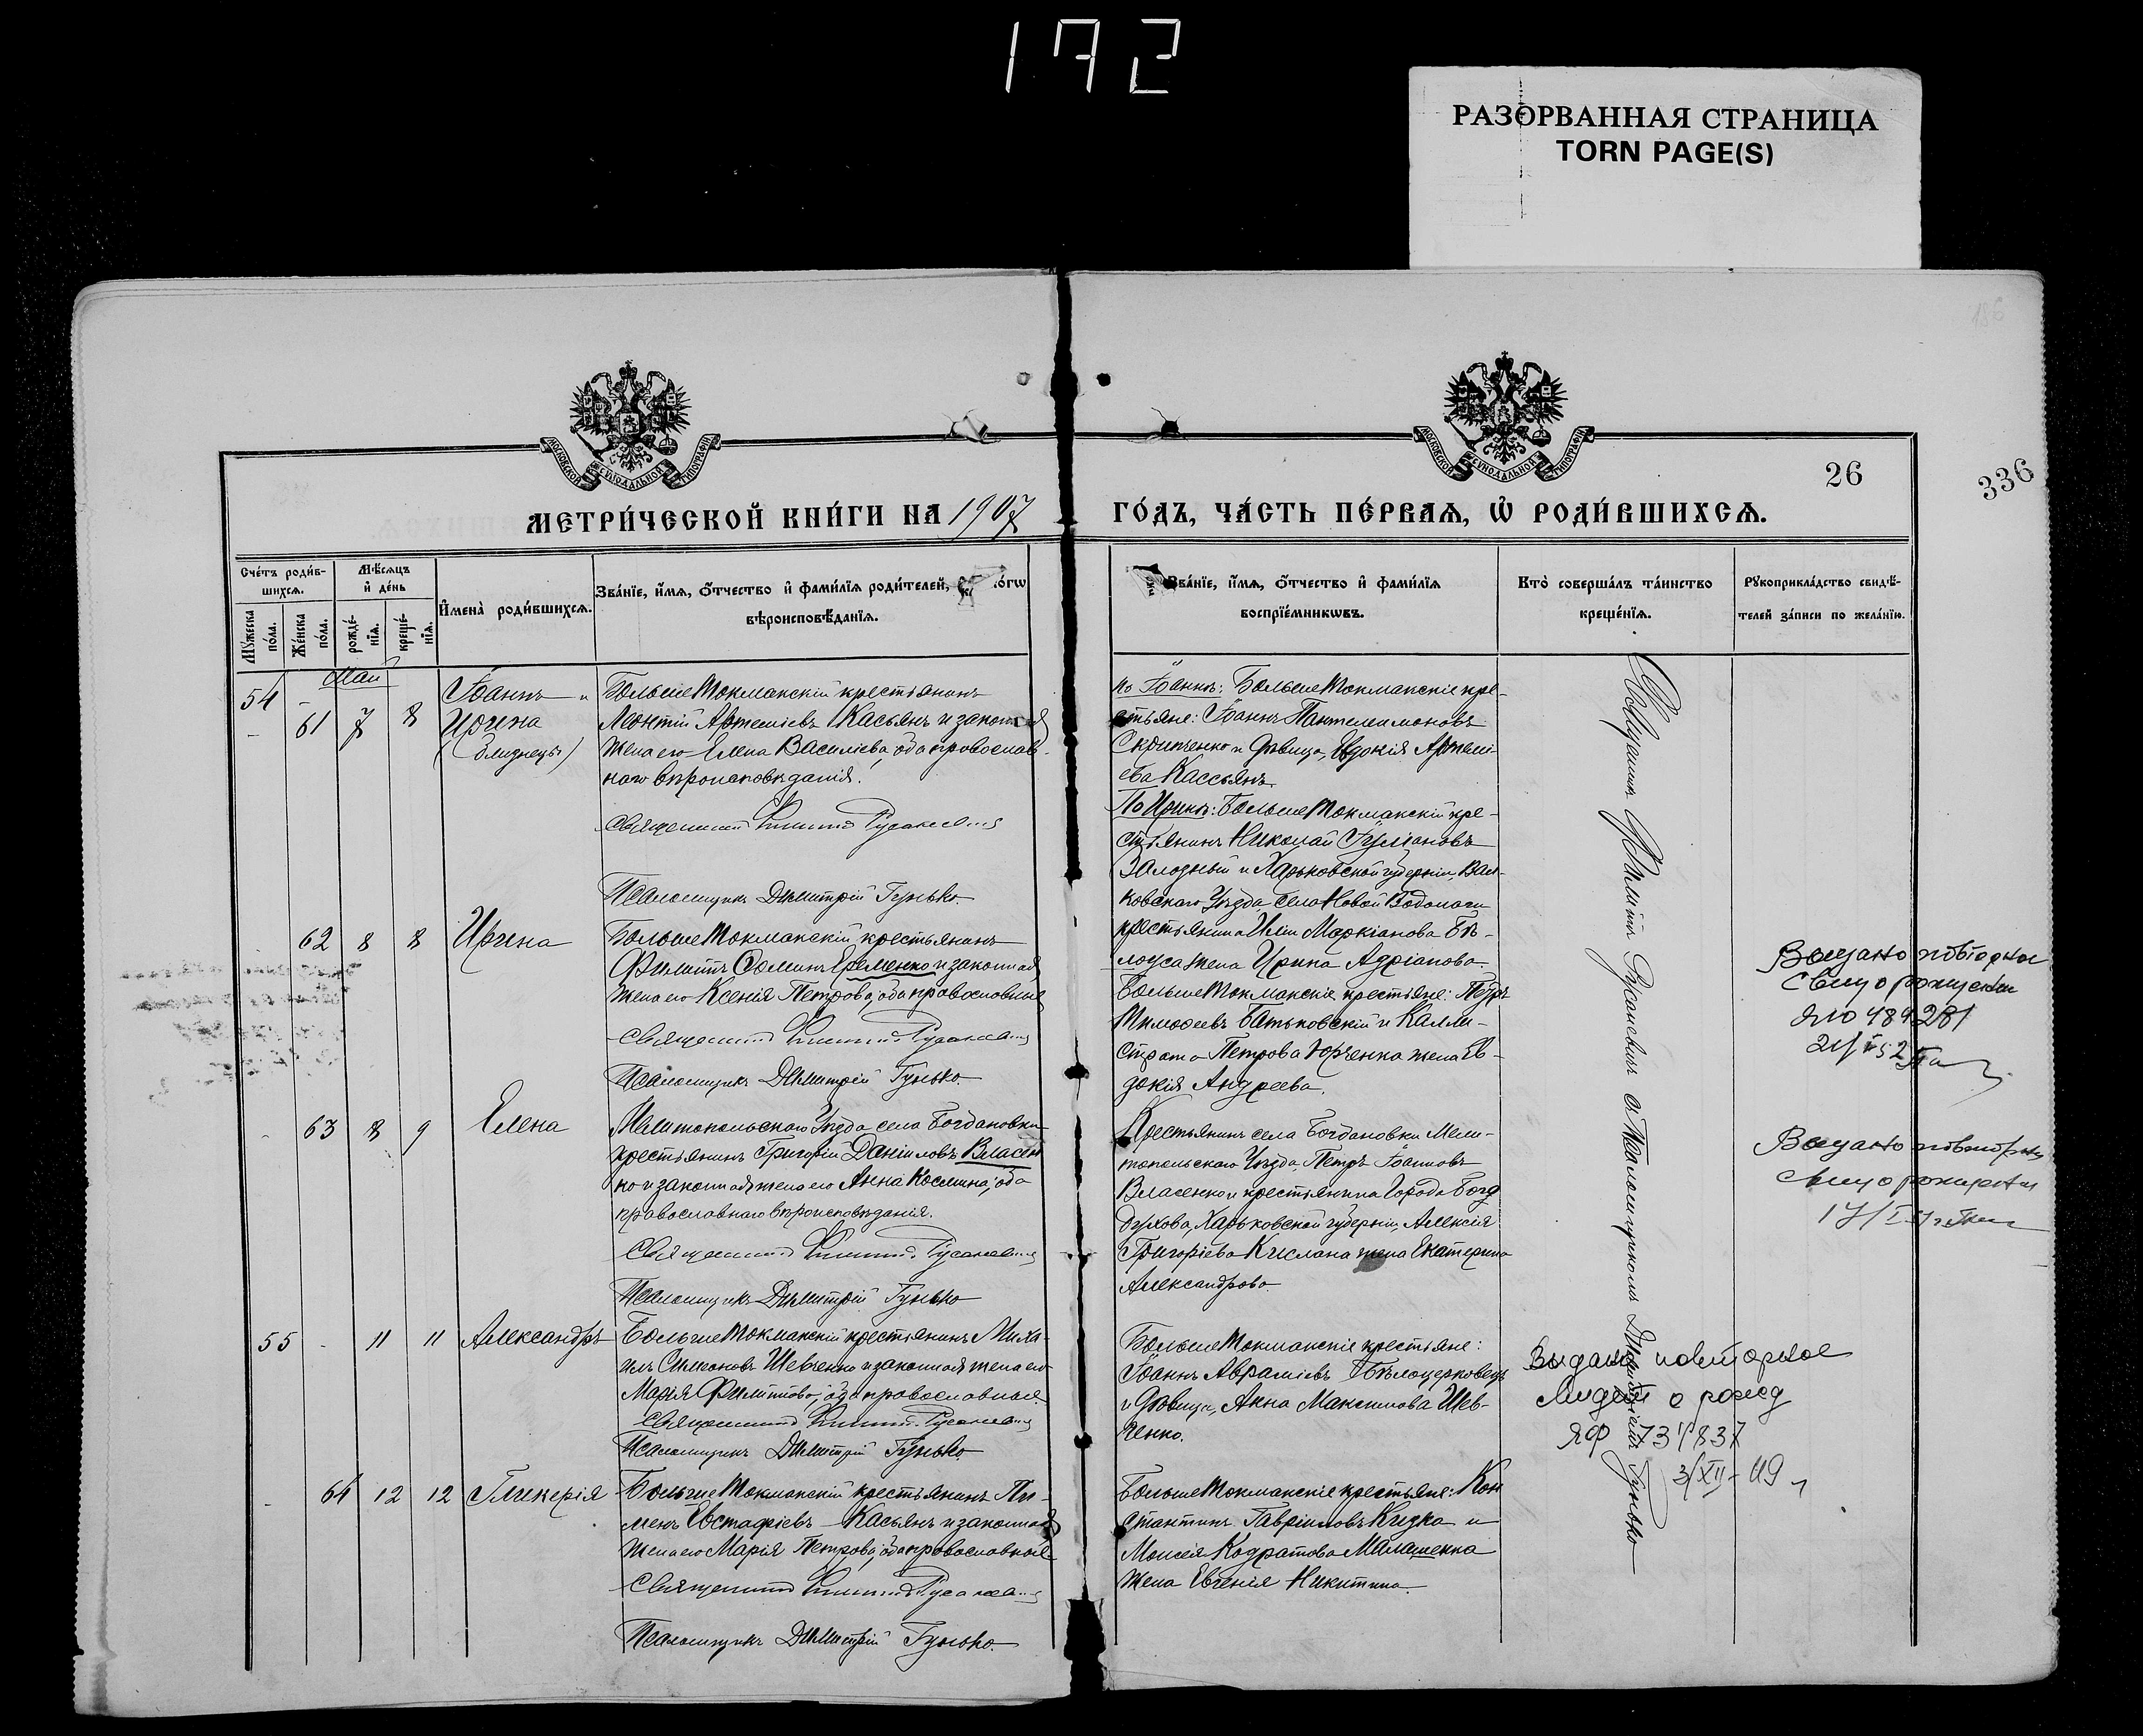 172
РАЗОРВАННАЯ СТРАНИЦА
TORN PAGE(S)
336
26
МОСКОВСКОЙ СУНОДАЛЬНОЙ ТИПОГРАФІИ
МОСКОВСКОЙ СУНОДАЛЬНОЙ ТИПОГРАФІИ
МЕТРИ́ЧЕСКОЙ КНИ́ГИ НА 1907
ГО́ДЪ, ЧА́СТЬ ПЕ́РВАѦ, Ѡ҆ РОДИ́ВШИХСѦ.
Сче́тъ роди́в-
шихсѧ.
Мꙋ́жеска
по́ла.
Же́нска
по́ла.
Мѣ́сѧцъ
и҆ де́нь
рожде́-
нїѧ.
креще́-
нїѧ.
И҆мена̀ роди́вшихсѧ.
Зва́нїе, и҆́мѧ, ѻ҆́тчество и҆ фами́лїѧ роди́телей,
вѣроисповѣ́данїѧ.
Зва́нїе, и҆́мѧ, ѻ҆́тчество и҆ фами́лїѧ
воспрїе́мникѡвъ.
Кто̀ соверша́лъ та́инство
креще́нїѧ.
Рꙋкоприкла́дство свидѣ́-
телей за́писи по жела́нїю.
Май
54 -
- 61 7 8
Іоаннъ и
Ирина
(близнецы)
Больше Токмакскій крестьянинъ
Леонтій Артеміевъ Касьянъ и законная
жена его Елена Василіева, оба православ-
наго вѣроисповѣданія.
Священникъ Филиппъ Русаневичъ
Псаломщикъ Димитрій Гунько.
По Іоаннѣ: Больше Токмакскіе кре-
стьяне: Іоаннъ Пантелеимоновъ
Скрипченко и дѣвица, Евдокія Артемі-
ева Кассьянъ.
По Иринѣ: Больше Токмакскій кре-
стьянинъ Николай Іуліановъ
Залозный и Харьковской губерніи, Вал-
ковскаго Уѣзда, села Новой Водолаги
крестьянина Иліи Маркіанова Бѣ-
лоуса жена Ирина Адріанова.
- 62 8 8 Ирина
Больше Токмакскій крестьянинъ
Филиппъ Ѳоминъ Еременко и законная
жена его Ксенія Петрова, оба православные
Священникъ Филиппъ Русаневичъ
Псаломщикъ Димитрій Гунько.
Больше Токмакскіе крестьяне: Петръ
Тимоѳеевъ Батьковскій и Калли-
страта Петрова Юрченка жена Ев-
докія Андреева.
Выдано повторное
свид о рождении
ЯЮ 484281
- 63 8 9 Елена
Мелитопольскаго Уѣзда села Богдановки
крестьянинъ Григорій Даніиловъ Власен
ко и законная жена его Анна Космина, оба
православнаго вѣроисповѣданія.
Священникъ Филиппъ Русаневичъ
Псаломщикъ Димитрій Гунько
Крестьянинъ села Богдановки Мели-
топольскаго Уѣзда, Петръ Іоанновъ
Власенко и крестьянина Города Богд
духова, Харьковской губерніи, Алексія
Григоріева Кислана жена Екатерина
Александрова.
Выдано повторное
свид о рождении
55 - 11 11 Александръ
Больше Токмакскій крестьянинъ Миха-
илъ Симоновъ Шевченко и законная жена его
Марія Филиппова, оба православные.
Священникъ Филиппъ Русаневичъ
Псаломщикъ Димитрій Гунько.
Больше Токмакскіе крестьяне:
Іоаннъ Авраміевъ Бѣлоцерковецъ
и дѣвица, Анна Максимова Шев-
ченко.
Выдано повторное
свидет о рожд
ЯФ 731837
3/XII-49 г
- 64 12 12 Гликерія
Больше Токмакскій крестьянинъ Пи-
менъ Евстафіевъ Касьянъ и законная
жена его Марія Петрова, оба православные
Священникъ Филиппъ Русаневичъ
Псаломщикъ Димитрій Гунько.
Больше Токмакскіе крестьяне: Кон
стантинъ Гавріиловъ Кидка и
Моисея Кодратова Малашенка
жена Евгенія Никитина.
Священникъ Филиппъ Русаневичъ съ Псаломщикомъ Димитріемъ Гунько